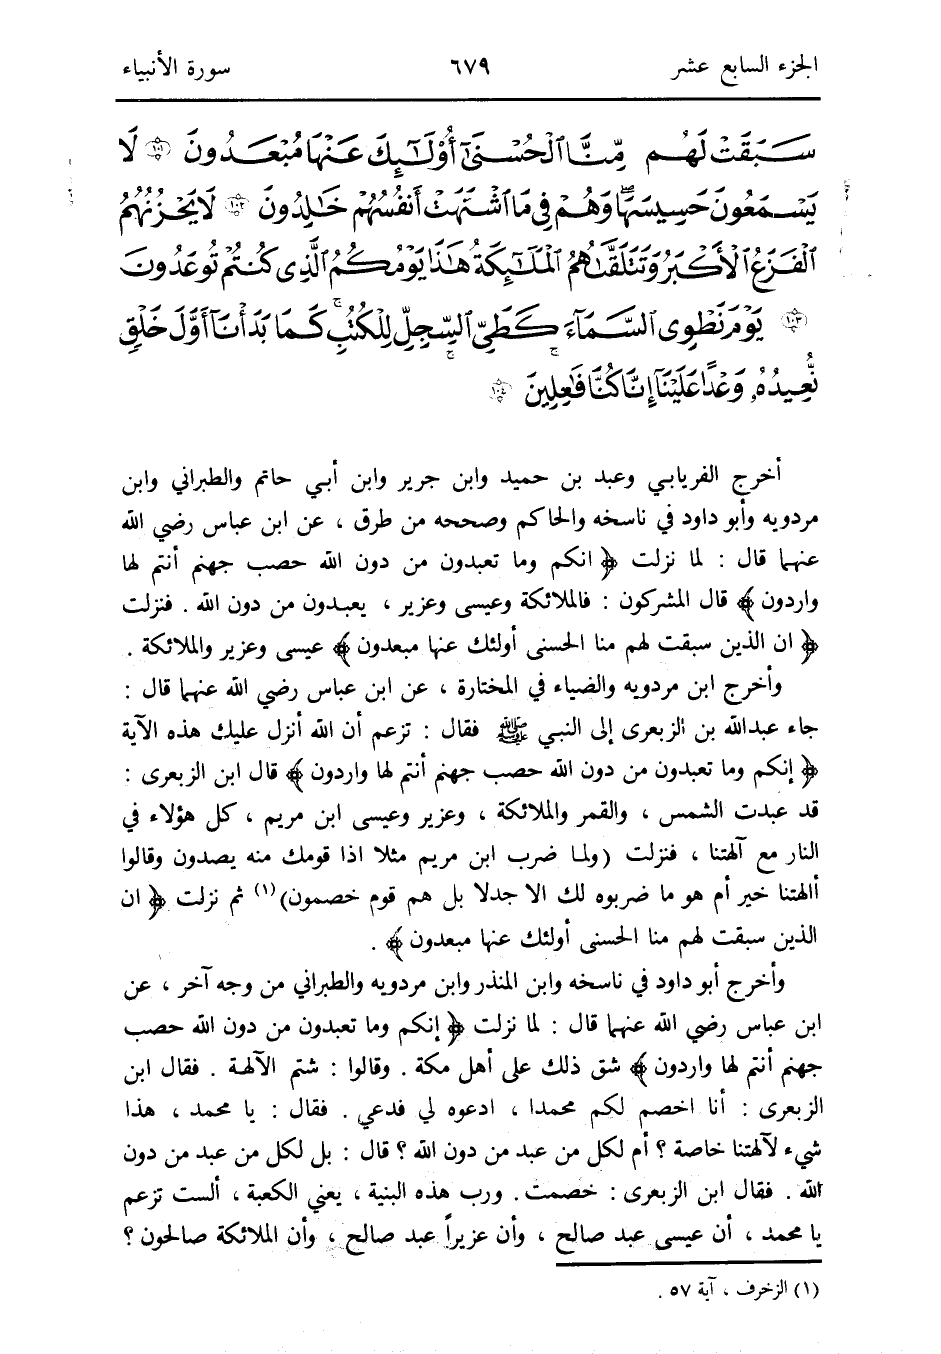 الجزء السابع عشر ٦٧٩ سورة الأنبياء
سَبَقَتْ لَهُم مِّنَّا ٱلْحُسْنَىٰٓ أُوْلَـٰٓئِكَ عَنْهَا مُبْعَدُونَ ١٠١ لَا
يَسْمَعُونَ حَسِيسَهَا وَهُمْ فِى مَا ٱشْتَهَتْ أَنفُسُهُمْ خَـٰلِدُونَ ١٠٢ لَا يَحْزُنُهُمُ
ٱلْفَزَعُ ٱلْأَكْبَرُ وَتَتَلَقَّىٰهُمُ ٱلْمَلَـٰٓئِكَةُ هَـٰذَا يَوْمُكُمُ ٱلَّذِى كُنتُمْ تُوعَدُونَ
١٠٣ يَوْمَ نَطْوِى ٱلسَّمَآءَ كَطَىِّ ٱلسِّجِلِّ لِلْكُتُبِ كَمَا بَدَأْنَآ أَوَّلَ خَلْقٍ
نُّعِيدُهُۥ وَعْدًا عَلَيْنَآ إِنَّا كُنَّا فَـٰعِلِينَ ١٠٤
أخرج الفريابي وعبد بن حميد وابن جرير وابن أبي حاتم والطبراني وابن
مردويه وأبو داود في ناسخه والحاكم وصححه من طرق ، عن ابن عباس رضي الله
عنهما قال : لما نزلت ﴿ انكم وما تعبدون من دون الله حصب جهنم أنتم لها
واردون ﴾ قال المشركون : فالملائكة وعيسى وعزير ، يعبدون من دون الله . فنزلت
﴿ ان الذين سبقت لهم منا الحسنى أولئك عنها مبعدون ﴾ عيسى وعزير والملائكة .
وأخرج ابن مردويه والضياء في المختارة ، عن ابن عباس رضي الله عنهما قال :
جاء عبدالله بن الزبعرى إلى النبي ﷺ فقال : تزعم أن الله أنزل عليك هذه الآية
﴿ إنكم وما تعبدون من دون الله حصب جهنم أنتم لها واردون ﴾ قال ابن الزبعرى :
قد عبدت الشمس ، والقمر والملائكة ، وعزير وعيسى ابن مريم ، كل هؤلاء في
النار مع آلهتنا ، فنزلت (ولما ضرب ابن مريم مثلا اذا قومك منه يصدون وقالوا
أالهتنا خير أم هو ما ضربوه لك الا جدلا بل هم قوم خصمون)(١) ثم نزلت ﴿ ان
الذين سبقت لهم منا الحسنى أولئك عنها مبعدون ﴾ .
وأخرج أبو داود في ناسخه وابن المنذر وابن مردويه والطبراني من وجه آخر ، عن
ابن عباس رضي الله عنهما قال : لما نزلت ﴿ إنكم وما تعبدون من دون الله حصب
جهنم أنتم لها واردون ﴾ شق ذلك على أهل مكة . وقالوا : شتم الآلهة . فقال ابن
الزبعرى : أنا اخصم لكم محمدا ، ادعوه لي فدعي . فقال : يا محمد ، هذا
شيء لآلهتنا خاصة ؟ أم لكل من عبد من دون الله ؟ قال : بل لكل من عبد من دون
الله . فقال ابن الزبعرى : خصمت . ورب هذه البنية ، يعني الكعبة ، ألست تزعم
يا محمد ، أن عيسى عبد صالح ، وأن عزيراً عبد صالح ، وأن الملائكة صالحون ؟
(١) الزخرف ، آية ٥٧ .